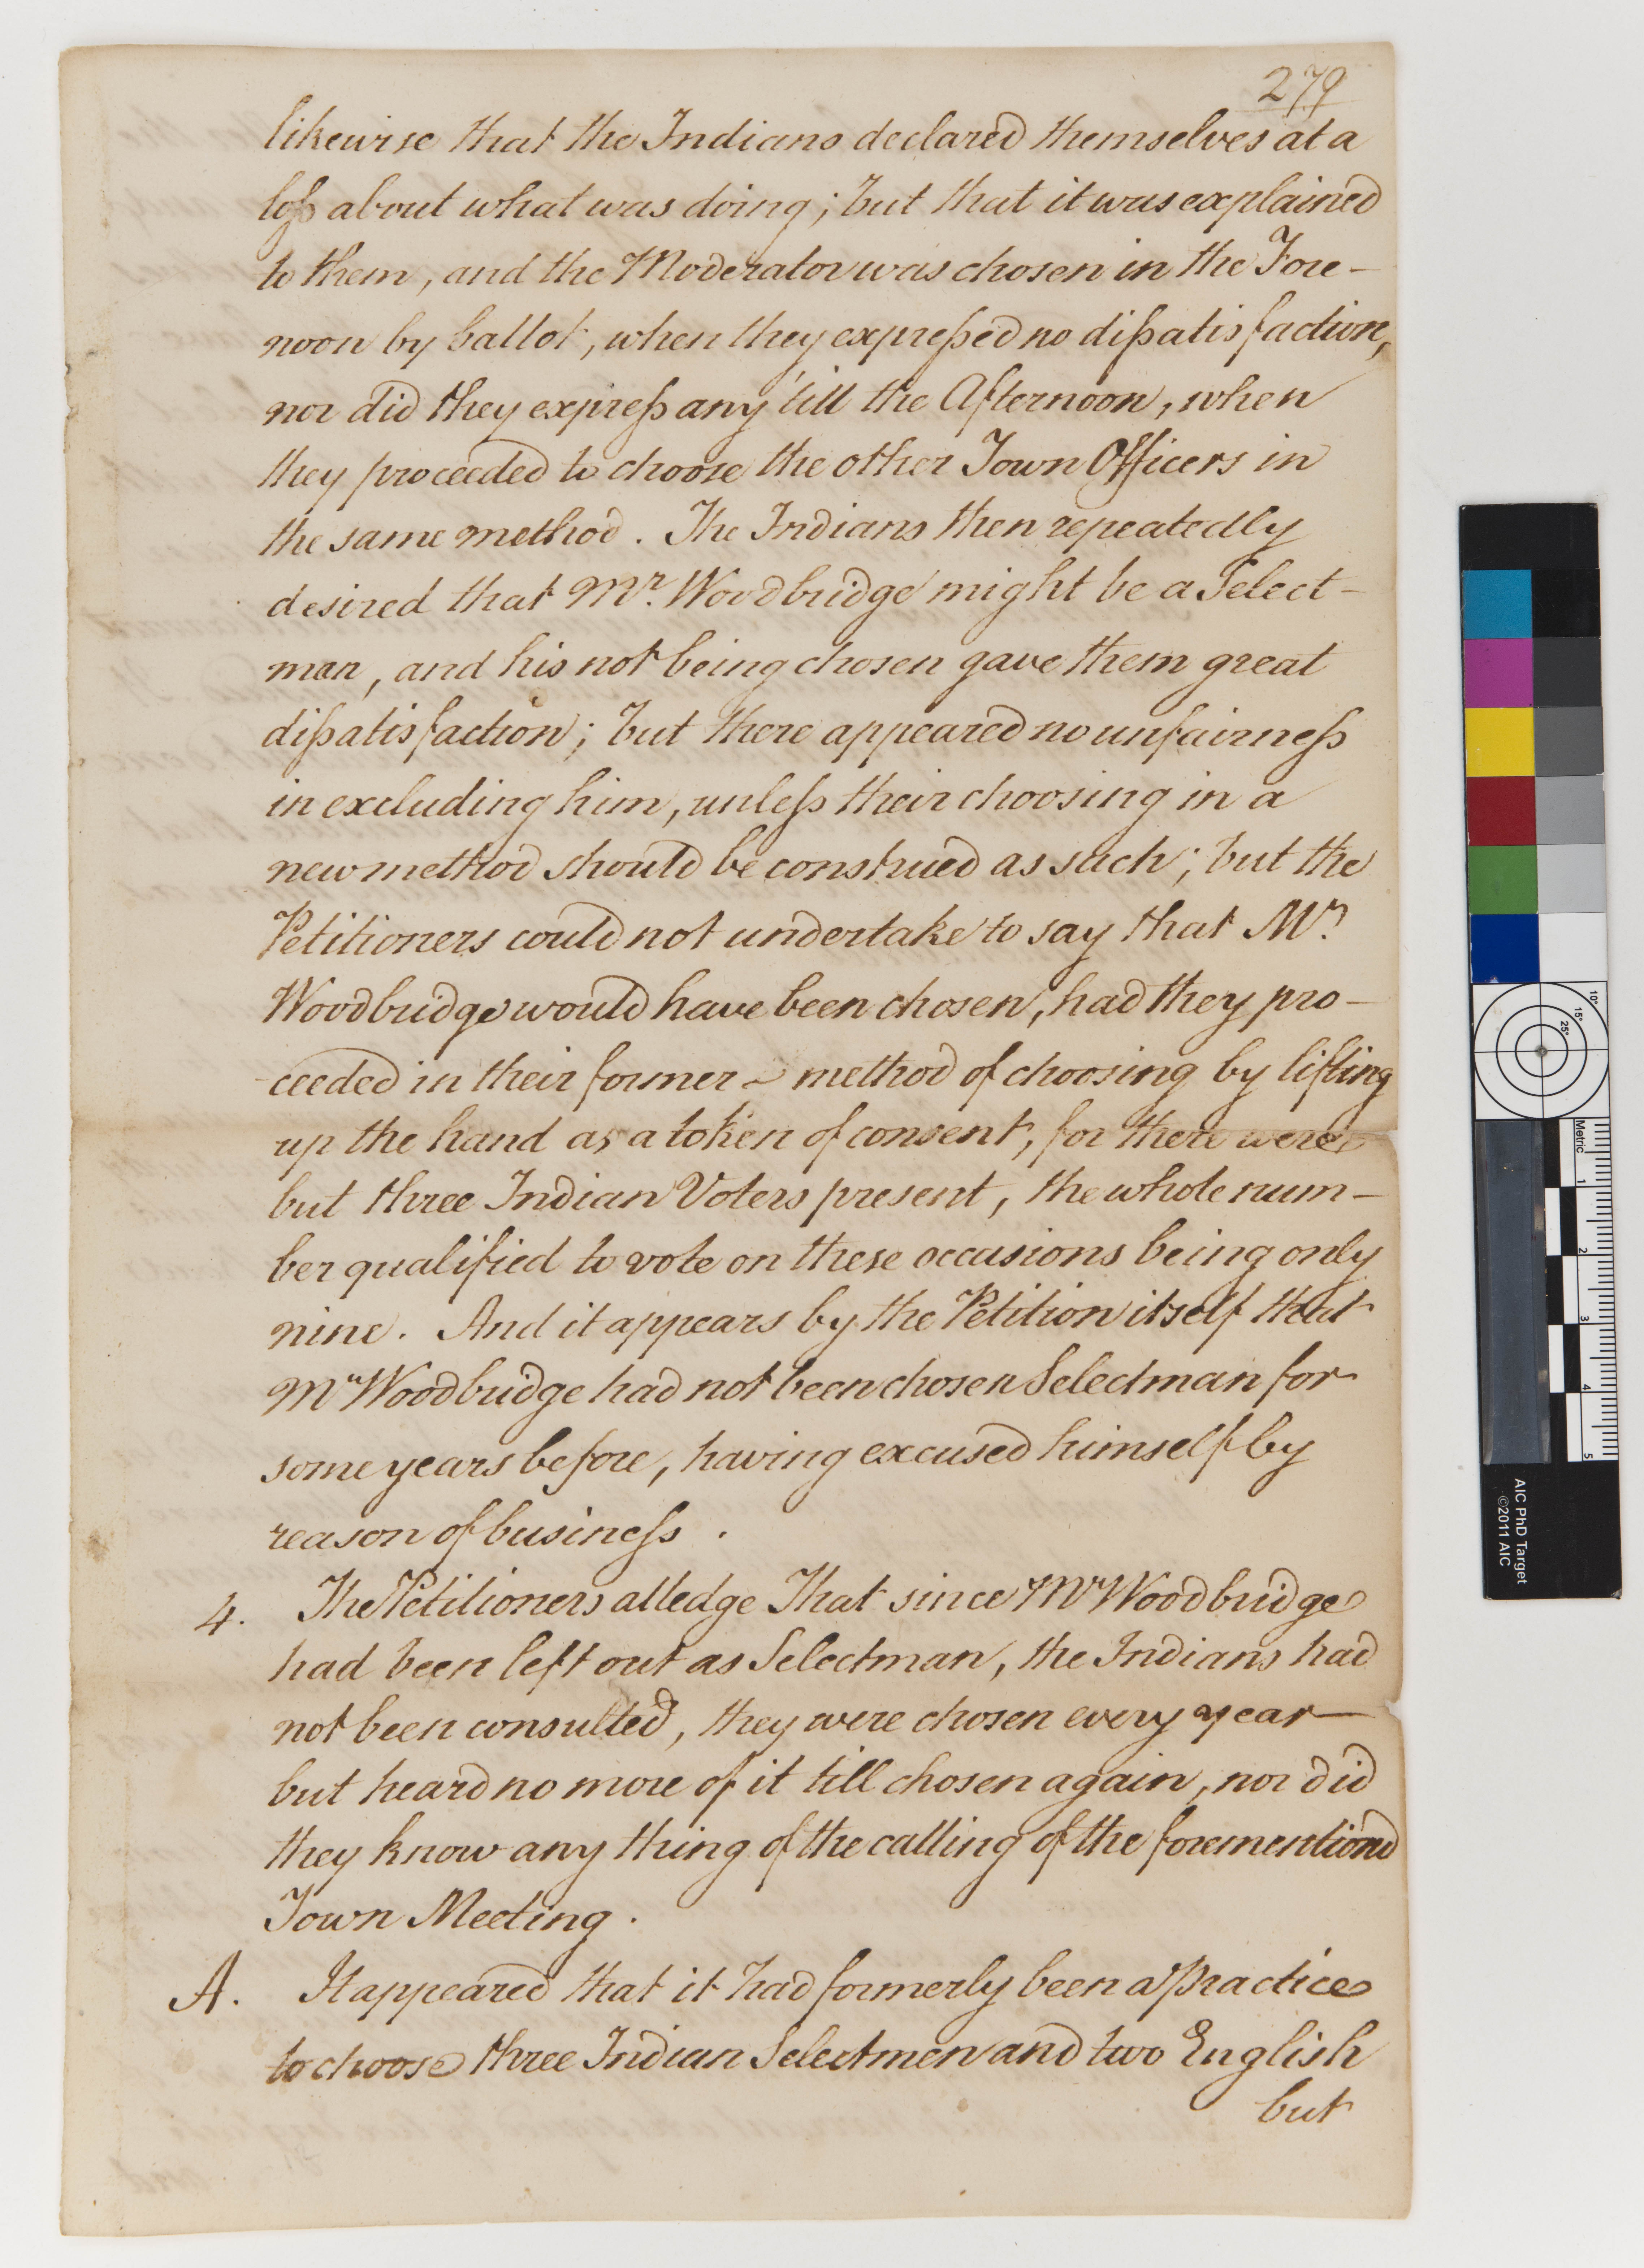 279
likewise that the Indians declared themselves at a
loſs about what was doing; but that it was explained
to them, and the Moderator was chosen in the Fore-
noon by ballot, when they expreſsed no diſsatisfaction,
nor did they expreſs any 'till the Afternoon, when
they proceeded to choose the other Town Officers in
the same method. The Indians then repeatedly
desired that Mr. Woodbridge might be a Select-
man, and his not being chosen gave them great
diſsatisfaction; but there appeared no unfairneſs
in excluding him, unleſs their choosing in a
new method should be construed as such; but the
Petitioners could not undertake to say that Mr.
Woodbridge would have been chosen, had they pro-
ceeded in their former method of choosing by lifting
up the hand as a token of consent, for there were
but three Indian Voters present, the whole num-
ber qualified to vote on these occasions being only
nine. And it appears by the Petition itself that
Mr Woodbridge had not been chosen Selectman for
some years before, having excused himself by
reason of busineſs.
4. The Petitioners alledge That since Mr Woodbridge
had been left out as Selectman, the Indians had
not been consulted, they were chosen every year
but heard no more of it till chosen again, nor did
they know any thing of the calling of the forementiond
Town Meeting.
A. It appeared that it had formerly been a Practice
to choose three Indian Selectmen and two English
but
Metric
1
2
3
4
5
10°
15°
25°
AIC PhD Target
©2011 AIC